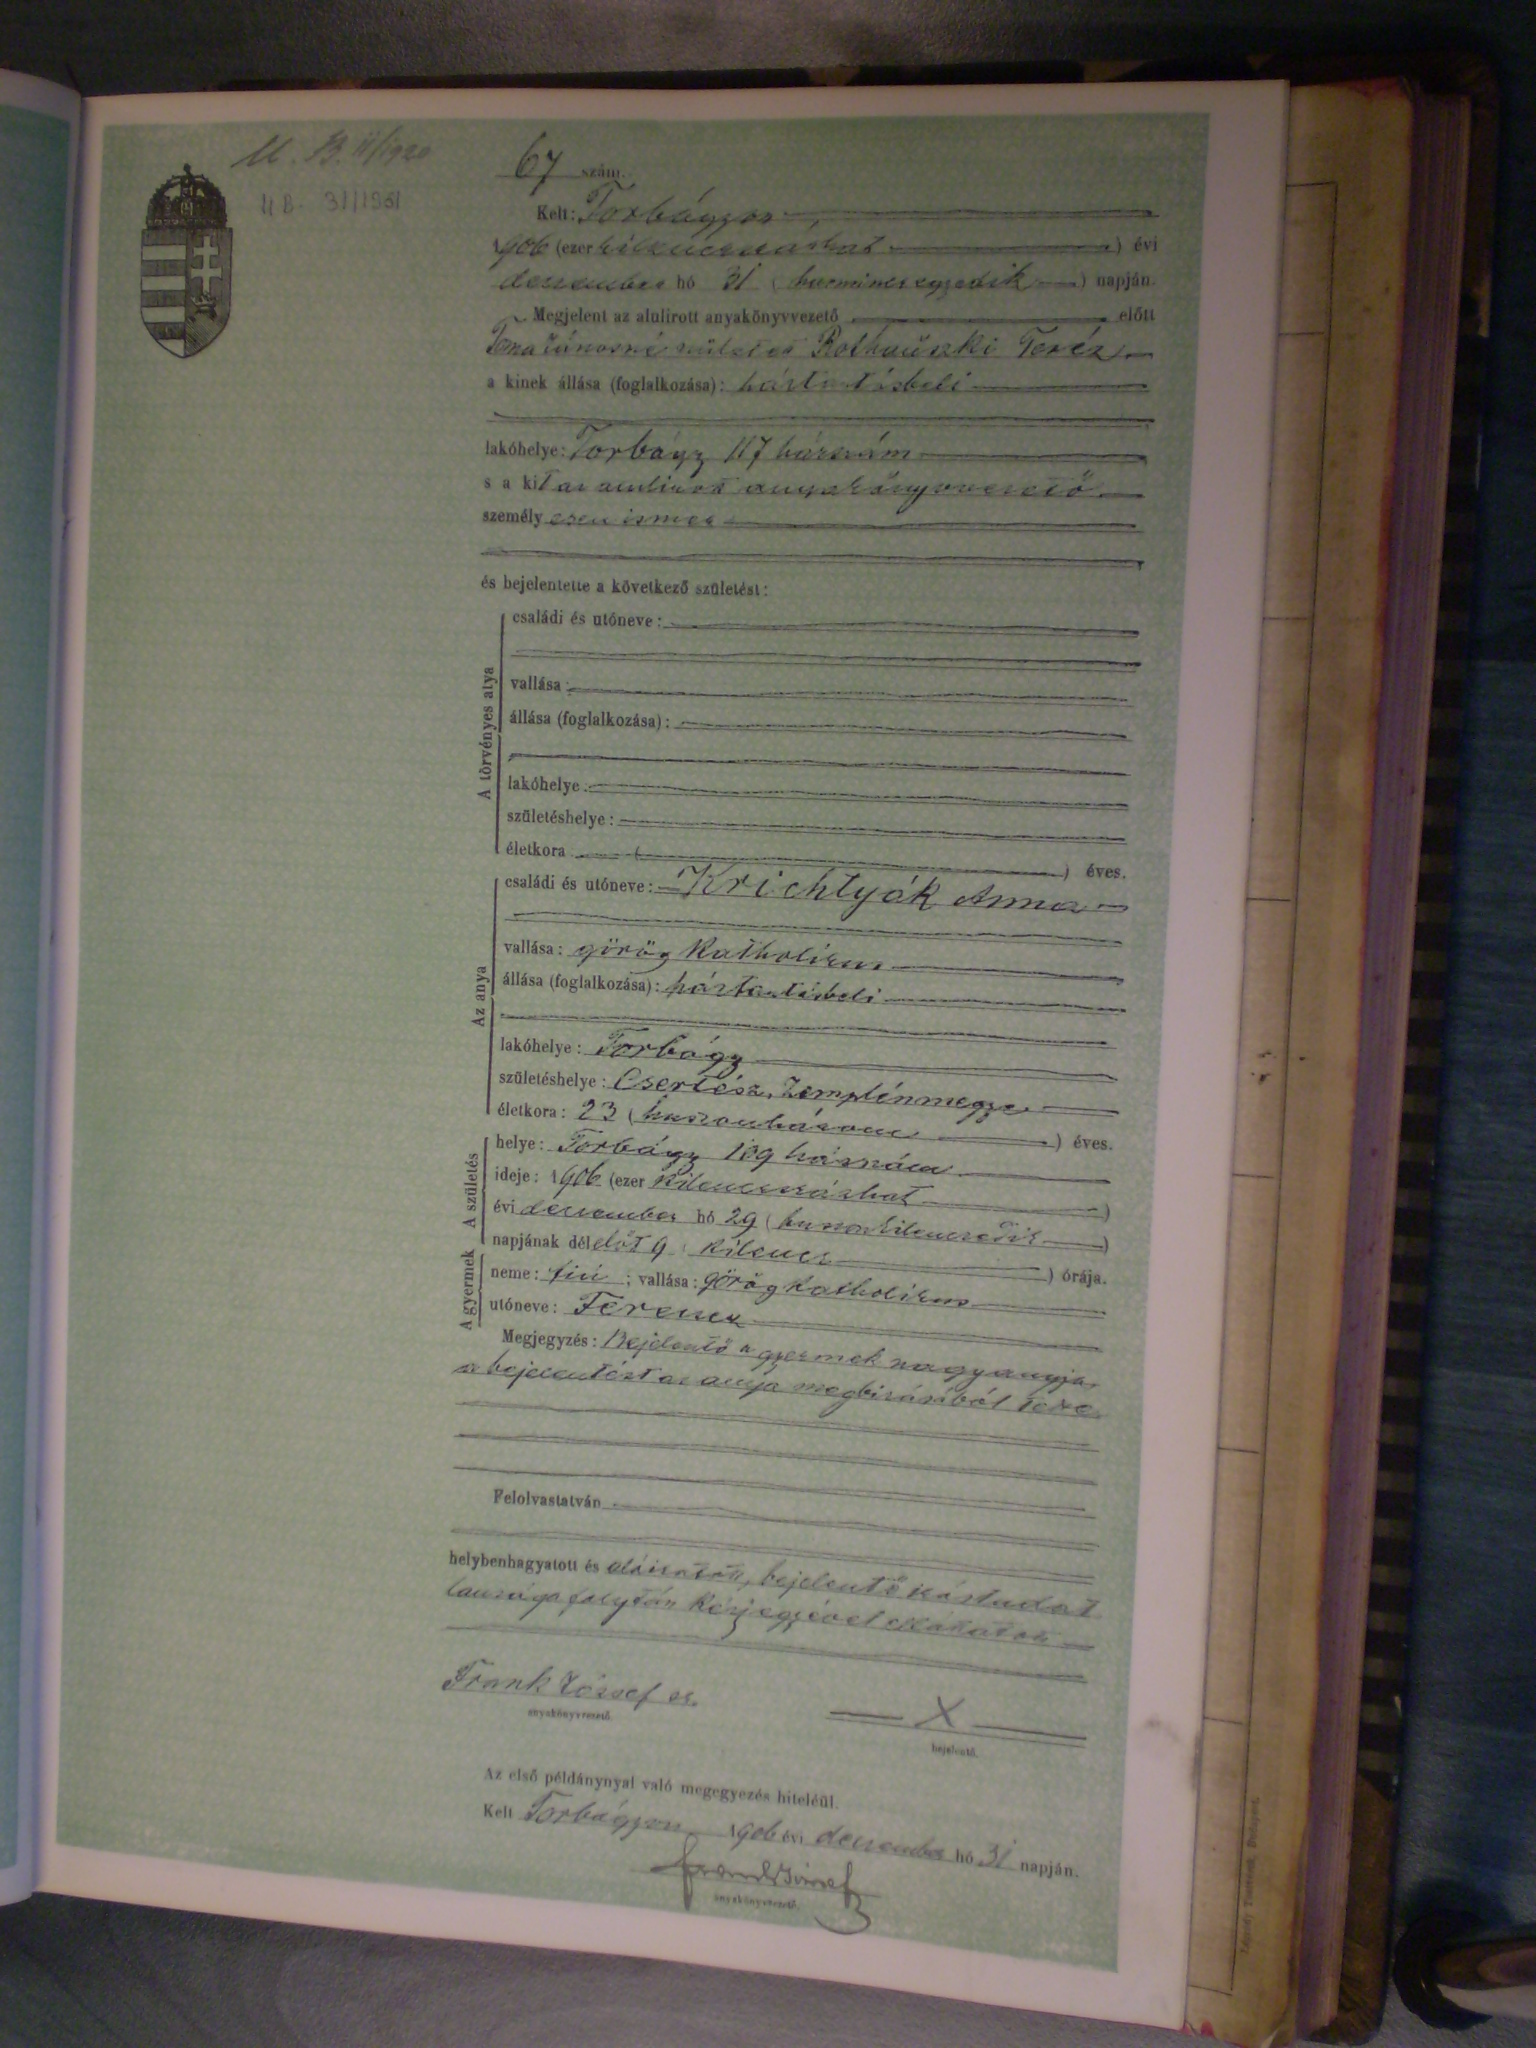 M. B. 11/1920
U B. 31/1961
67 szám.
Kelt: Torbágyon,
1906 (ezer kilenczszázhat) évi
deczember hó 31 (harminczegyedik) napján.
Megjelent az alulirott anyakönyvvezető előtt
Toma Jánosné született Teréz
a kinek állása (foglalkozása): háztartásbeli
lakóhelye: Torbágy 117 házszám
s a kit az alulirott anyakönyvvezető
személyesen ismer
és bejelentette a következő születést:
A törvényes atya
családi és utóneve:
vallása:
állása (foglalkozása):
lakóhelye
születéshelye:
életkora ( ) éves.
Az anya
családi és utóneve: Krichtyák Anna
vallása: görög katholikus
állása (foglalkozása): háztartásbeli
lakóhelye: Torbágy
születéshelye: Csertész, Zemplénmegye
életkora: 23 (huszonhárom) éves.
A születés
helye: Torbágy 109 házszám
ideje: 1906 (ezer kilenczszázhat)
évi deczember hó 29 (huszonkilenczedik)
napjának délelőtt 9 (kilencz) órája.
A gyermek
neme: fiú; vallása: görög katholikus
utóneve: Ferencz
Megjegyzés: Bejelentő a gyermek nagyanyja,
a bejelentést az anyja megbizásából tette.
Felolvastatván
helybenhagyatott és aláiratott, bejelentő irástudat
lansága folytán kézjegyével ellátatott
Frank József sk.
anyakönyvvezető.
X
bejelentő.
Az első példánynyal való megegyezés hiteléül.
Kelt Torbágyon 1906 évi deczember hó 31 napján.
Frank József
anyakönyvvezető.